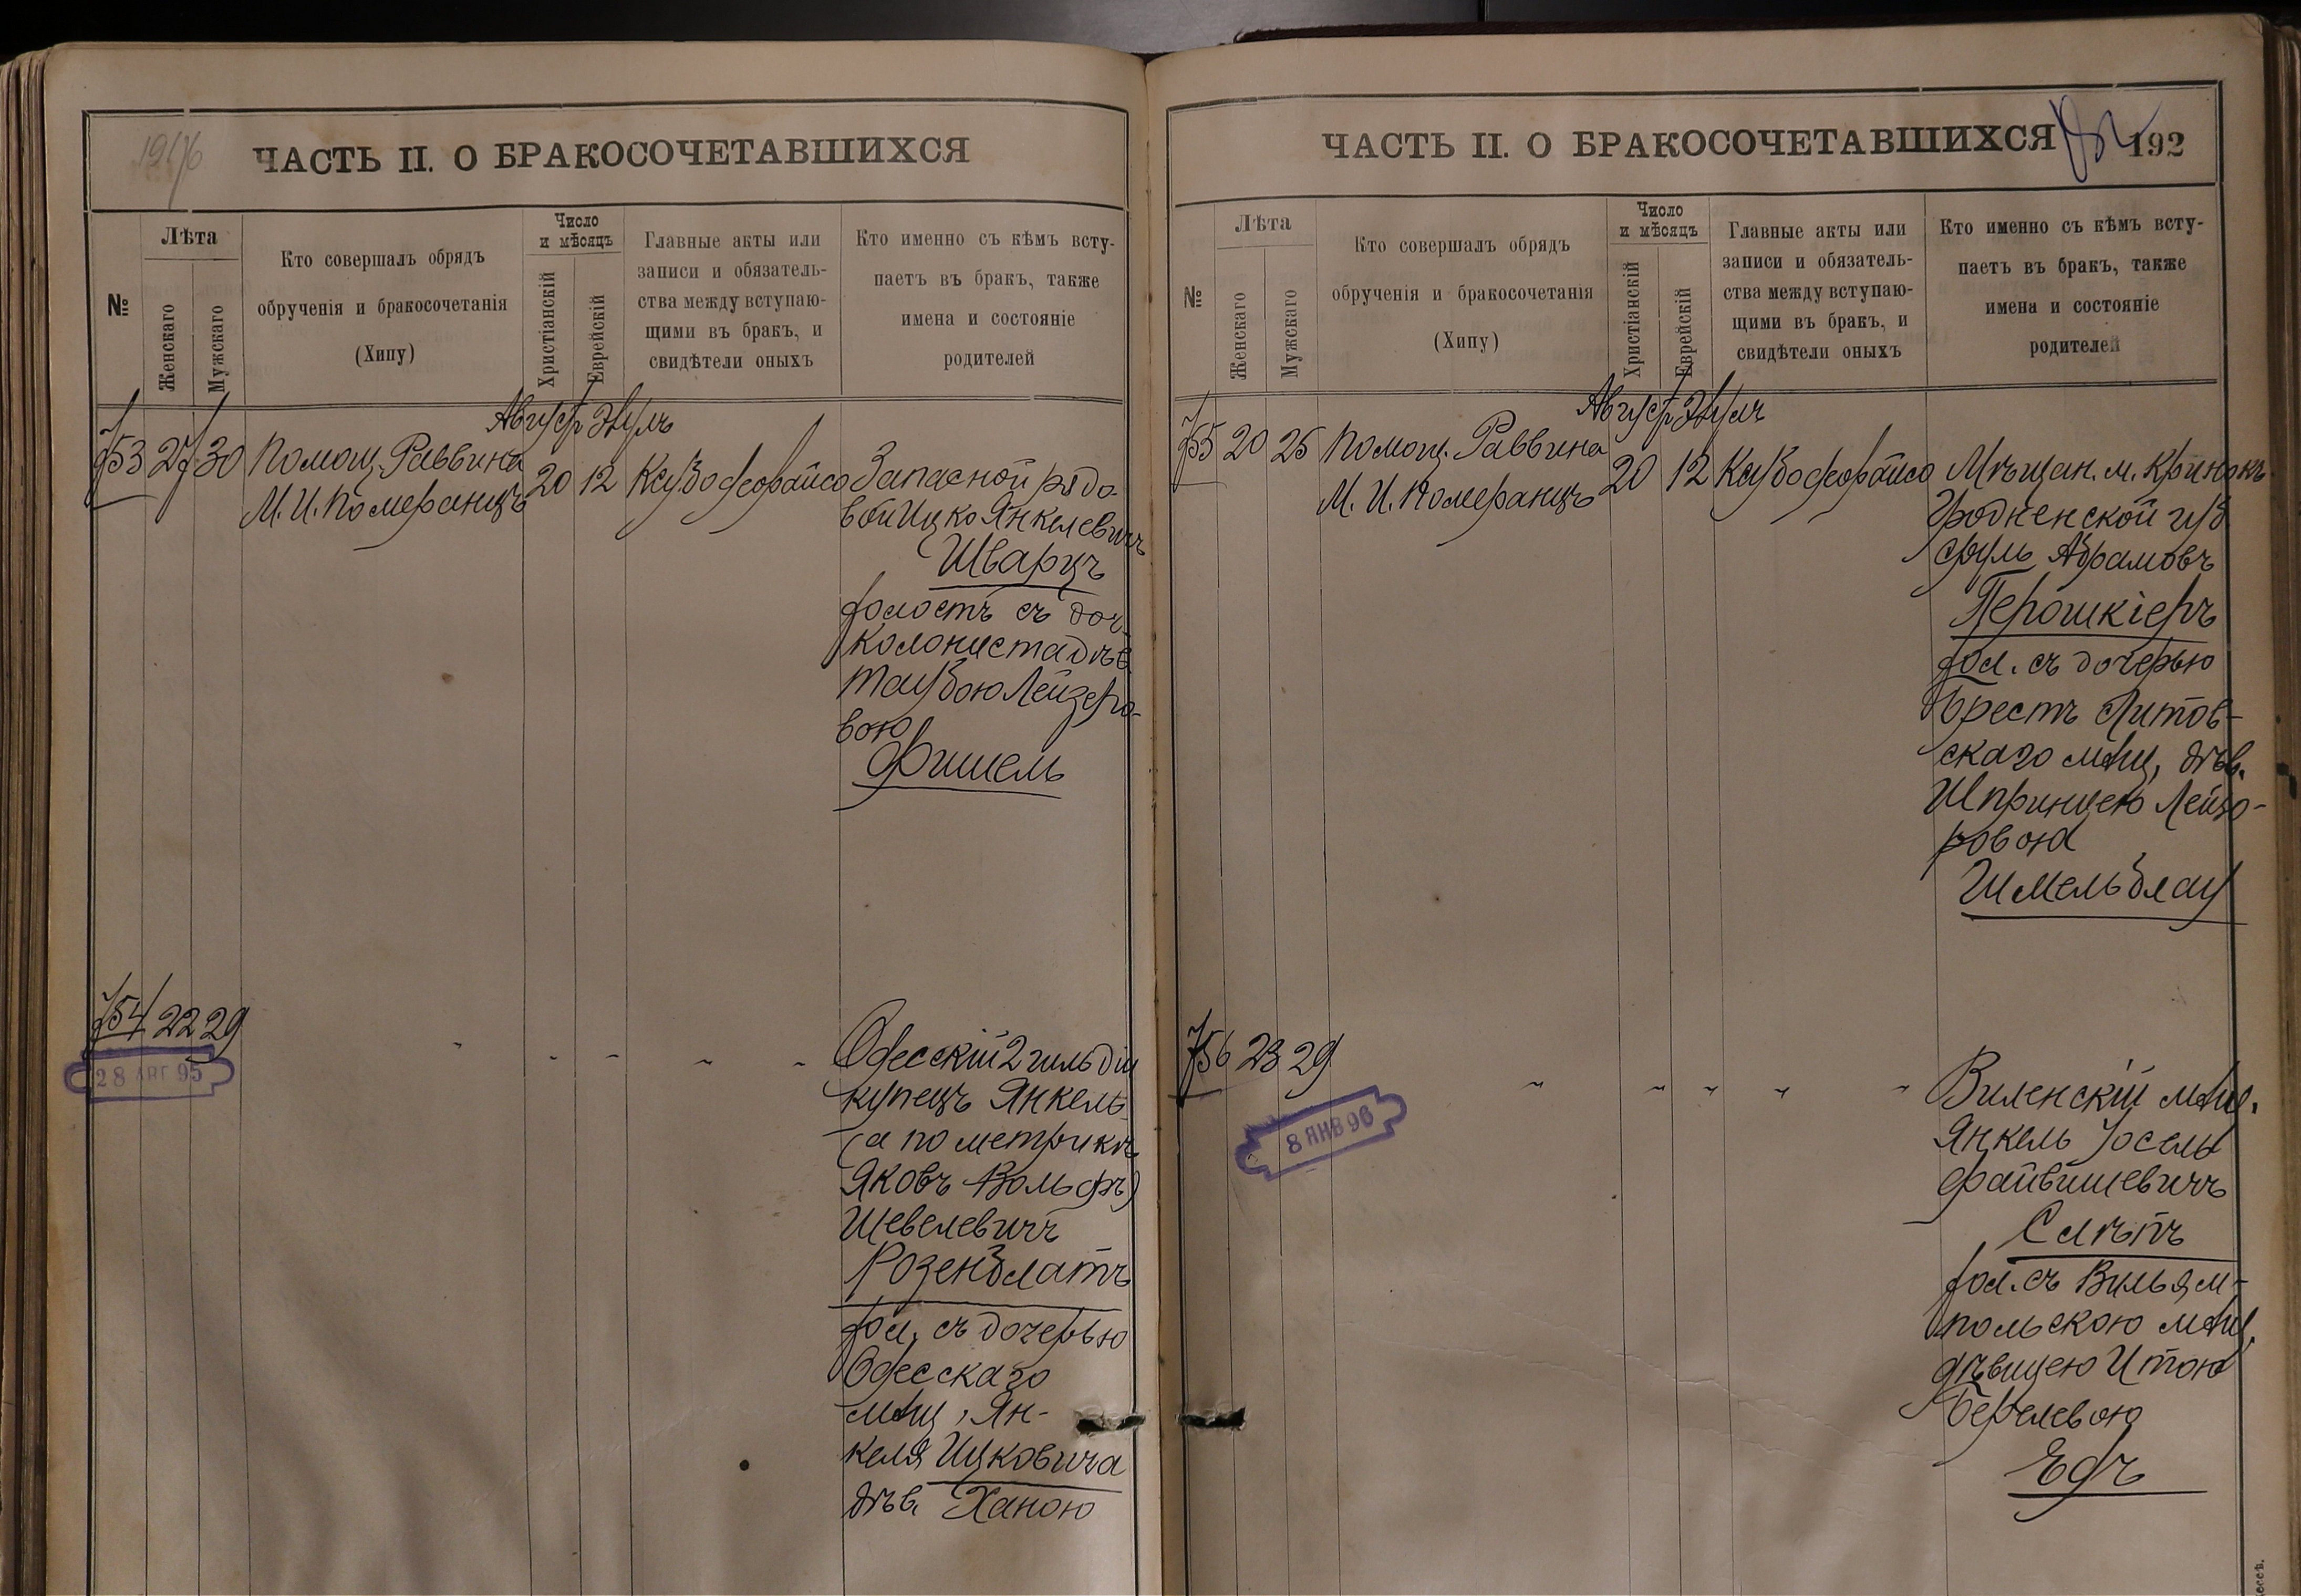 ЧАСТЬ II. О БРАКОСОЧЕТАВШИХСЯ
№
Лѣта
Женскаго
Мужскаго
Кто совершалъ обрядъ
обрученія и бракосочетанія
(Хипу)
Число
и мѣсяцъ
Христіанскій
Еврейскій
Главные акты или
записи и обязатель-
ства между вступаю-
щими въ бракъ, и
свидѣтели оныхъ
Кто именно съ кѣмъ всту-
паетъ въ бракъ, также
имена и состояніе
родителей
Август Элулъ
753 27 30 Помощ. Раввина
М. И. Померанцъ
20 12
Запасной рядо-
вой Ицко Янкелевичъ
Шварцъ
холостъ съ доч.
колониста дѣв.
Таубою Лейзеро-
вою
Фишель
754 22 29
28 АВГ 95
Одесскій 2 гильдіи
купецъ Янкель
(а по метрикѣ
Яковъ Вольфъ)
Шевелевичъ
Розенблатъ
хол. съ дочерью
Одесскаго
мѣщ. Ян-
келя Ицковича
дѣв. Ханою
ЧАСТЬ II. О БРАКОСОЧЕТАВШИХСЯ
192
№
Лѣта
Женскаго
Мужскаго
Кто совершалъ обрядъ
обрученія и бракосочетанія
(Хипу)
Число
и мѣсяцъ
Христіанскій
Еврейскій
Главные акты или
записи и обязатель-
ства между вступаю-
щими въ бракъ, и
свидѣтели оныхъ
Кто именно съ кѣмъ всту-
паетъ въ бракъ, также
имена и состояніе
родителей
Август Элулъ
755 20 25 Помощ. Раввина
М. И. Померанцъ
20 12
Мѣщан. м. Кринокъ
Гродненской губ
Сруль Абрамовъ
Перошкіеръ
хол. съ дочерью
Брестъ Литов-
скаго мѣщ. дѣв.
Шпринцею Лейзо-
ровою
Шмельблау
756 23 29
8 ЯНВ 96
Виленскій мѣщ.
Янкель Іосель
Файвишевичъ
Слѣпъ
хол. съ Вильям-
польскою мѣщ.
дѣвицею Итою
Берелевою
Ефъ